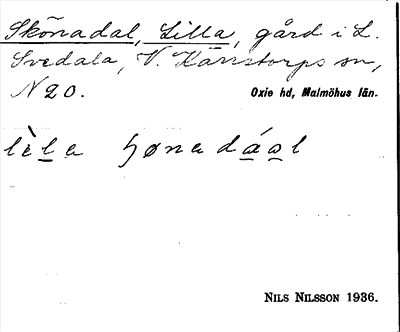 Skönadal, Lilla, gård i L.
Svedala, V. Kärrstorps sn,
N 20.
Oxie hd, Malmöhus län.
lèl̲a ɧønadá̲a̲l
NILS NILSSON 1936.